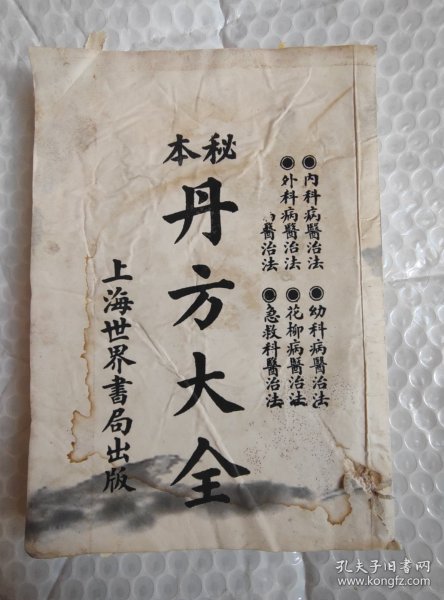 ●內科病醫治法
●外科病醫治法
醫治法
●幼科病醫治法
●花柳病醫治法
●急救科醫治法
秘本
丹方大全
上海世界書局出版
孔夫子旧书网
www.kongfz.com